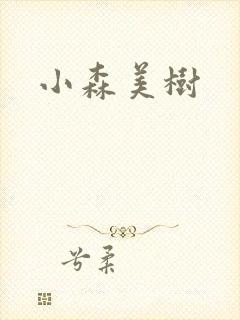 小森美樹
兮柔